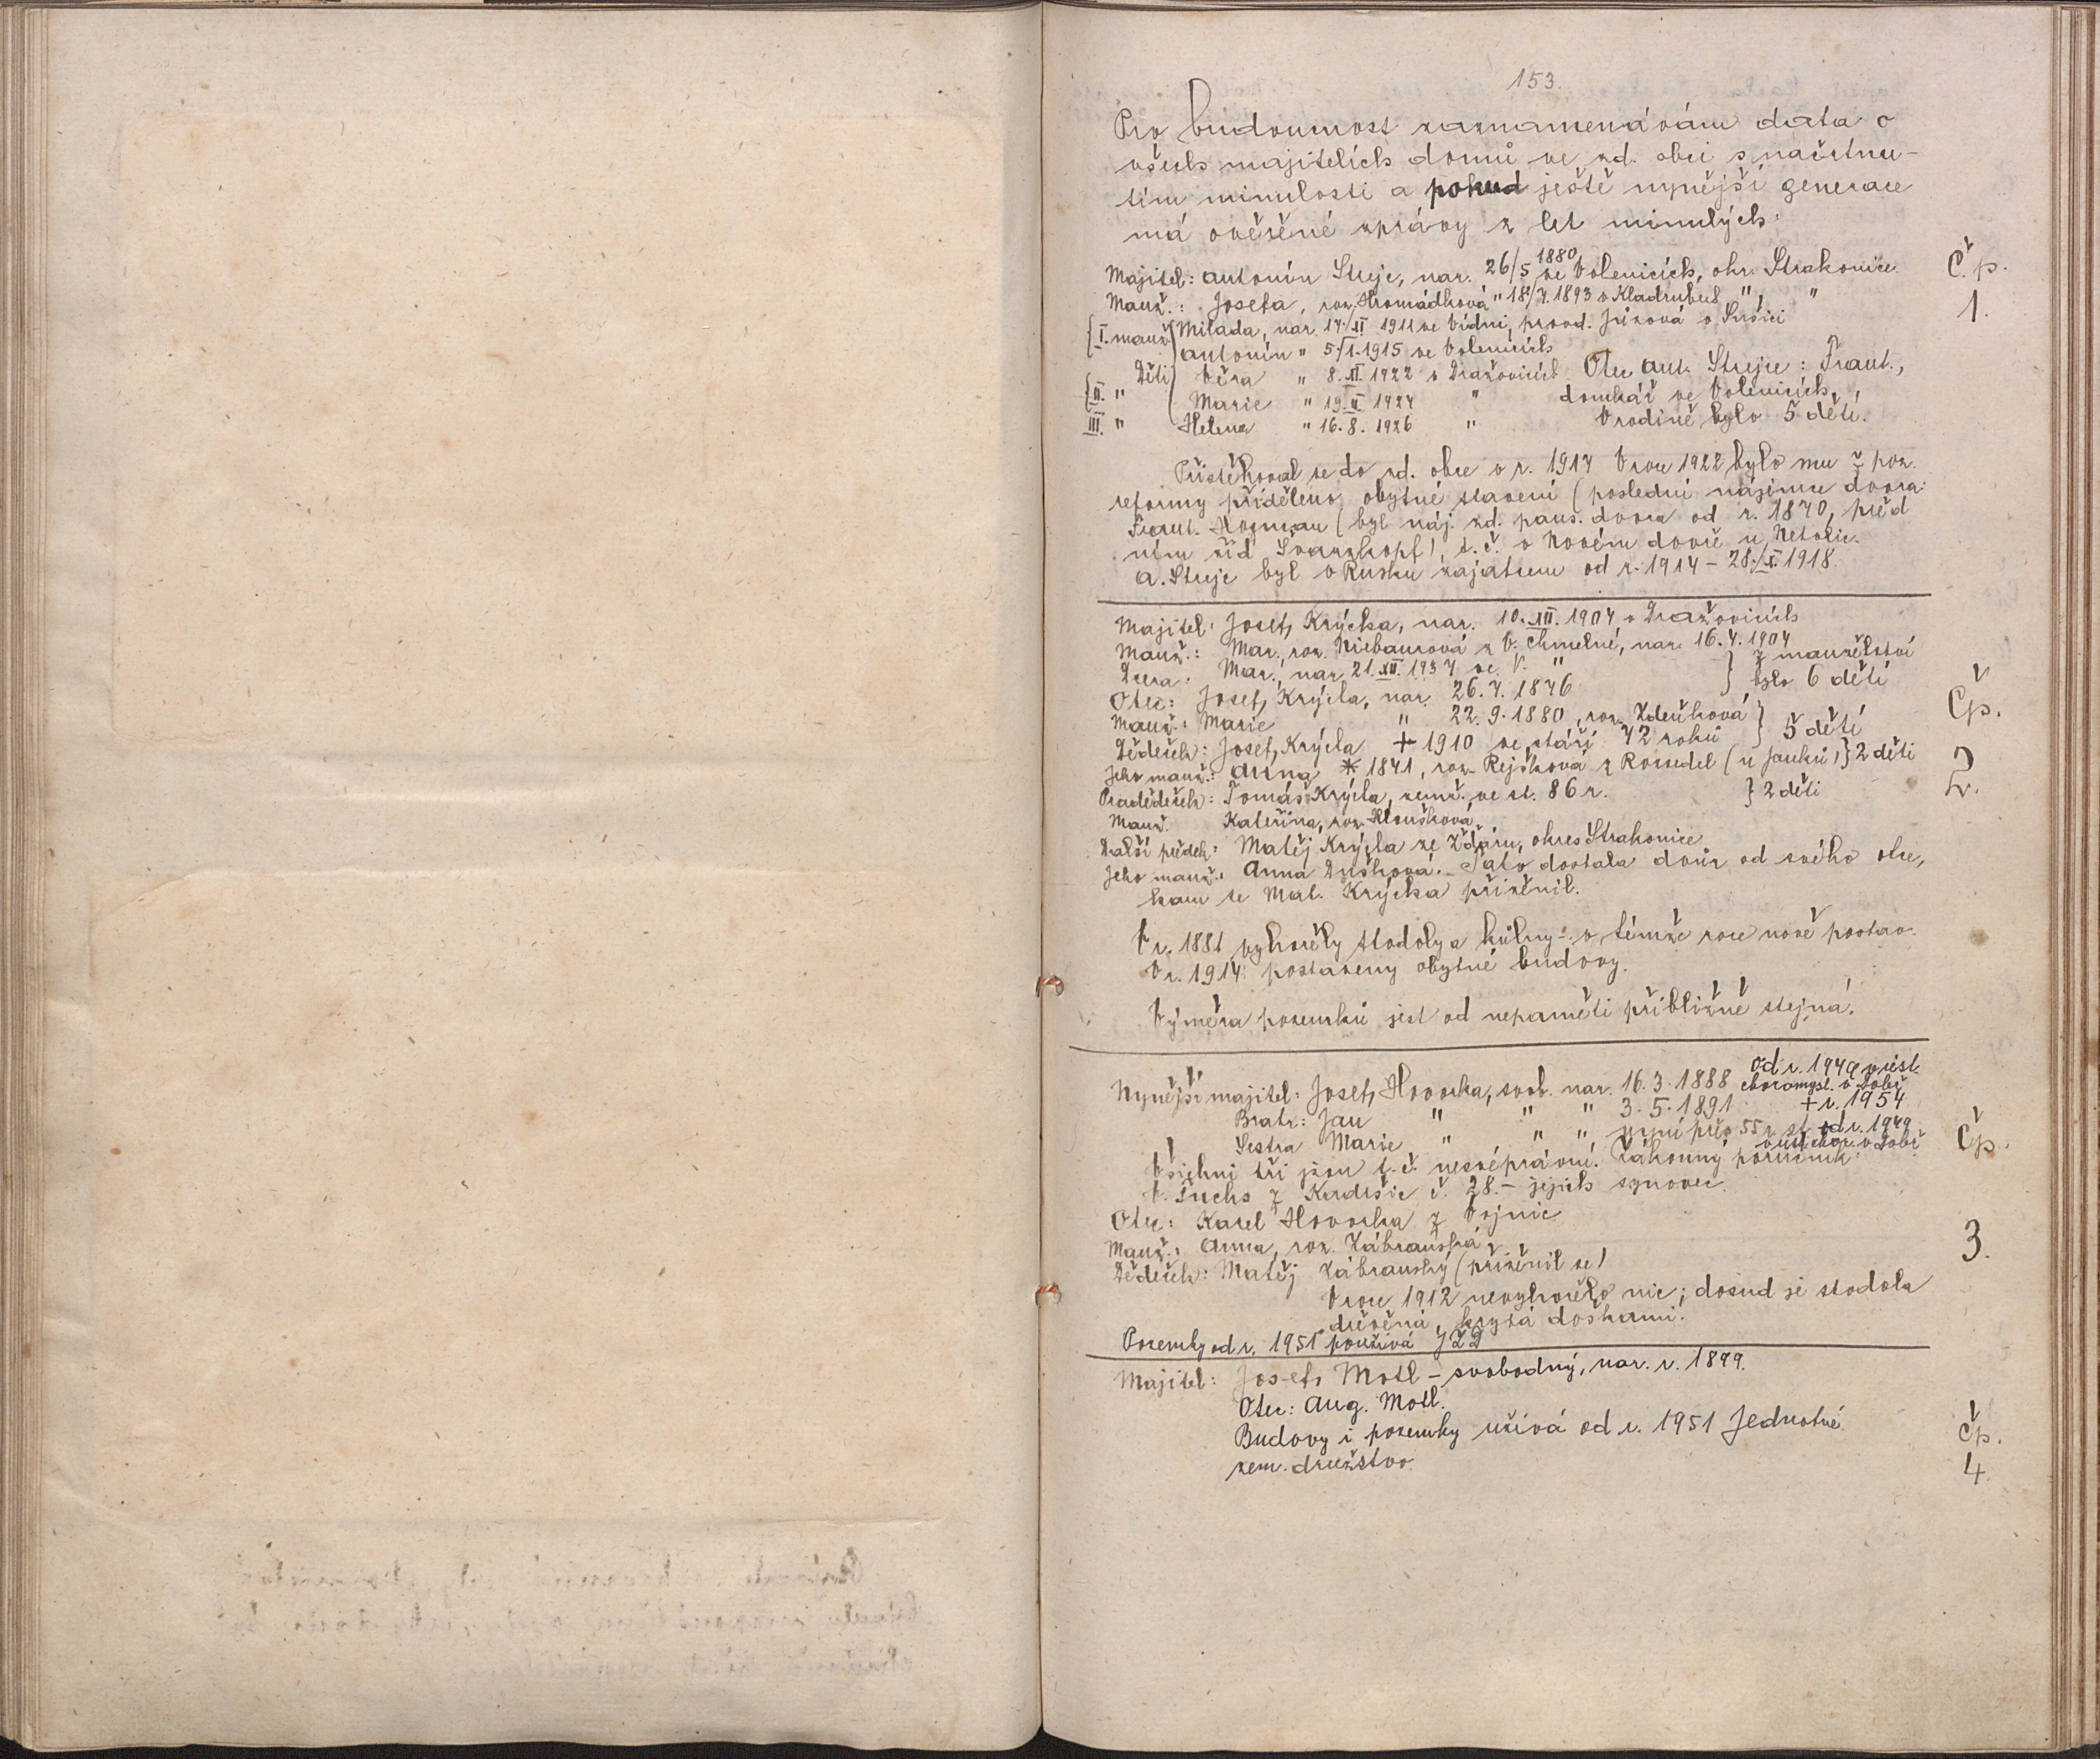 153.
Pro budoucnost zaznamenávám data o
všech majitelích domů ve zd. obci s načrtnu-
tím minulosti a pokud ještě nynější generace
má ověřené zprávy z let minulých:
Majitel: Antonín Strejc, nar. 26/5 1880 ve Volenicích, okr. Strakonice. Č.p.
Manž.: Josefa, roz. Hromádková " 18/7. 1893 v Kladrubech " , " 1.
{I. manž. Milada, nar. 14./XI 1911 ve Vídni, provd. Jůzová v Sušici
Antonín " 5./I. 1915 ve Volenicích
Děti Věra " 8. XI. 1922 v Dražovicích Otec Ant. Strejce: Frant.,
{II. " Marie " 19. II 1924 " domkář ve Volenicích,
III. " Helena " 16. 8. 1926 " V rodině bylo 5 dětí.
Přistěhoval se do zd. obce v r. 1914 V roce 1922 bylo mu z poz.
reformy přiděleno obytné stavení (poslední nájemce dvora:
Frant. Hozman (byl náj. zd. pans. dvora od r. 1870, před
ním žid Švarzkopf), t. č. v Novém dvoře u Netolic.
A. Strejc byl v Rusku zajatcem od r. 1914 – 28./X. 1918.
Majitel: Josef Krýcha, nar. 10. XII. 1904 v Dražovicích
Manž.: Mar., roz. Niebaurová z V. Chmelné, nar. 16. 4. 1904
Dcera: Mar., nar. 21. XII. 1934 ve V. " } z manželství
Otec: Josef Krýcla, nar. 26. 7. 1876 } bylo 6 dětí Čp.
Manž.: Marie " 22. 9. 1880, roz. Zdeňková } 5 dětí
Dědeček: Josef Krýcla + 1910 ve stáří 72 roků
Jeho manž.: Anna * 1841, roz. Rejšková z Rozsedel (u Janků) } 2 děti 2.
Pradědeček: Tomáš Krýcla, zemř. ve st. 86 r. } 2 děti
Manž. Kateřina, roz. Kloušková
Další předek: Matěj Krýcla ze Žďáru, okres Strakonice
Jeho manž.: Anna Dušková. Tato dostala dvůr od svého otce,
kam se Mat. Krýcha přiženil.
V r. 1881 vyhořely stodoly a kůlny – v témže roce nově postav.
V r. 1914 postaveny obytné budovy.
Výměra pozemků jest od nepaměti přibližně stejná.
Nynější majitel: Josef Hovorka, svob. nar. 16. 3. 1888 od r. 1949 v úst. choromysl. v Dobř
Bratr: Jan " " " 3. 5. 1891 + r. 1954
Sestra Marie " , " " nyní přes 55 r. st. od r. 1949 v úst. chor. v Dobř Čp.
Všichni tři jsou t. č. nesvéprávní. Zákonný poručník:
V. Fuchs z Kadešic č. 28. – jejich synovec.
Otec: Karel Hovorka z Vojnic
Manž.: Anna, roz. Zábranská 3.
Dědeček: Matěj Zábranský (přiženil se)
V roce 1912 nevyhořelo nic; dosud je stodola
dřevěná, krytá doškami.
Pozemky od r. 1951 používá JZD
Majitel: Josef Motl – svobodný, nar. r. 1899.
Otec: Aug. Motl.
Budovy i pozemky užívá od r. 1951 Jednotné Čp.
zem. družstvo. 4.